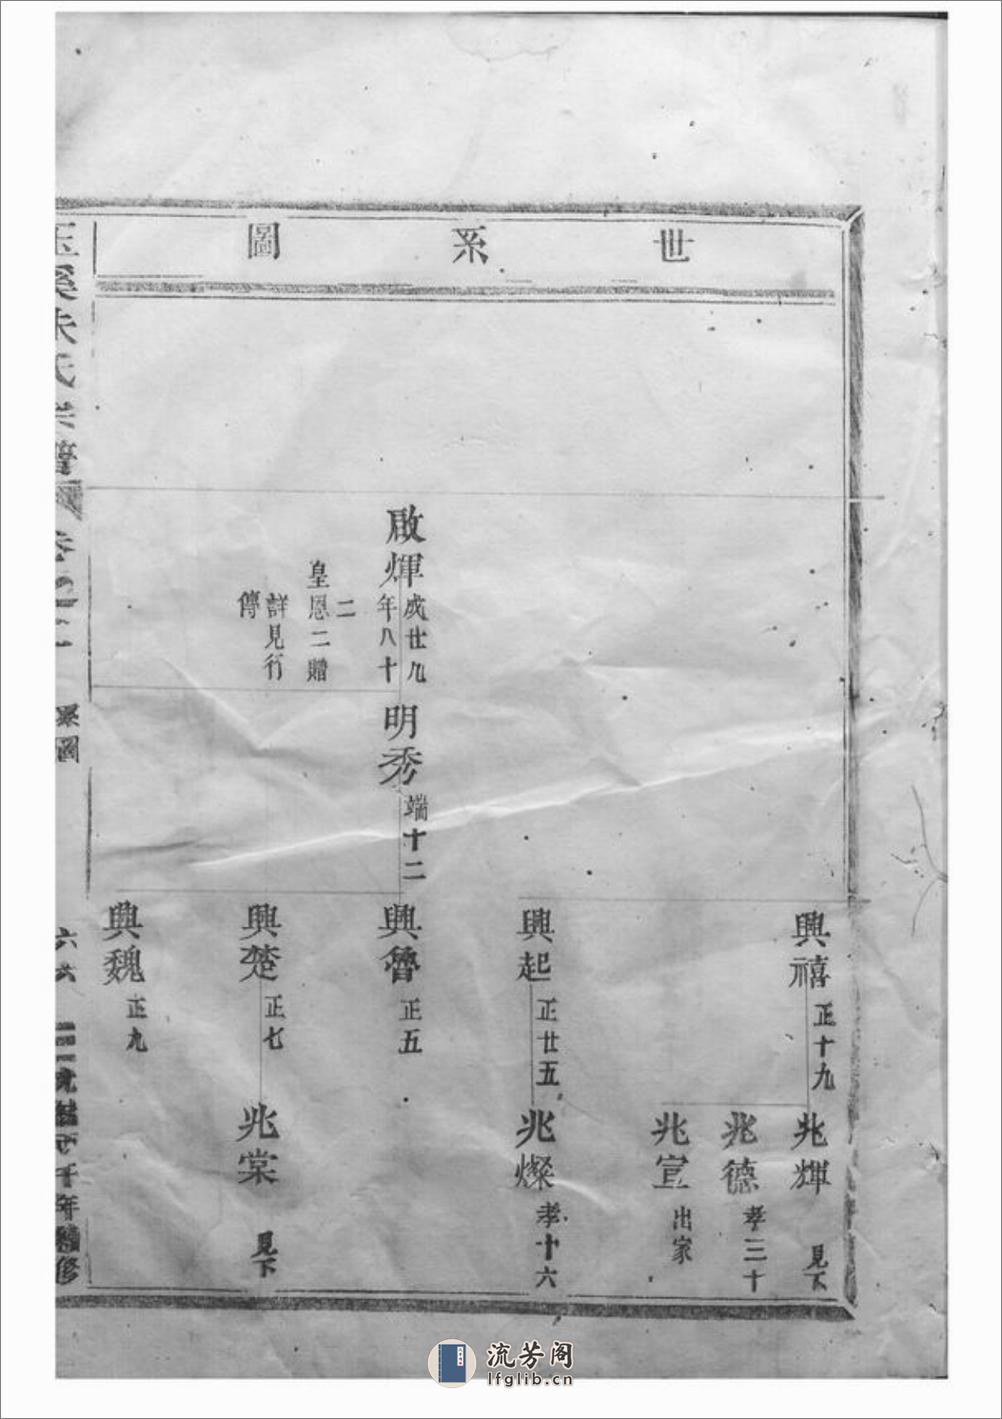 世系圖
啟煇
成廿九
年八十
二
皇恩二贈
詳見行
傳
明秀
端十二
興禧
正十九
興起
正廿五
興魯
正五
興楚
正七
興魏
正九
兆輝
見下
兆德
孝三十
兆宣
出家
兆燦
孝十六
兆棠
見下
玉溪朱氏宗譜
系圖
六六
年續修
流芳阁
lfglib.cn